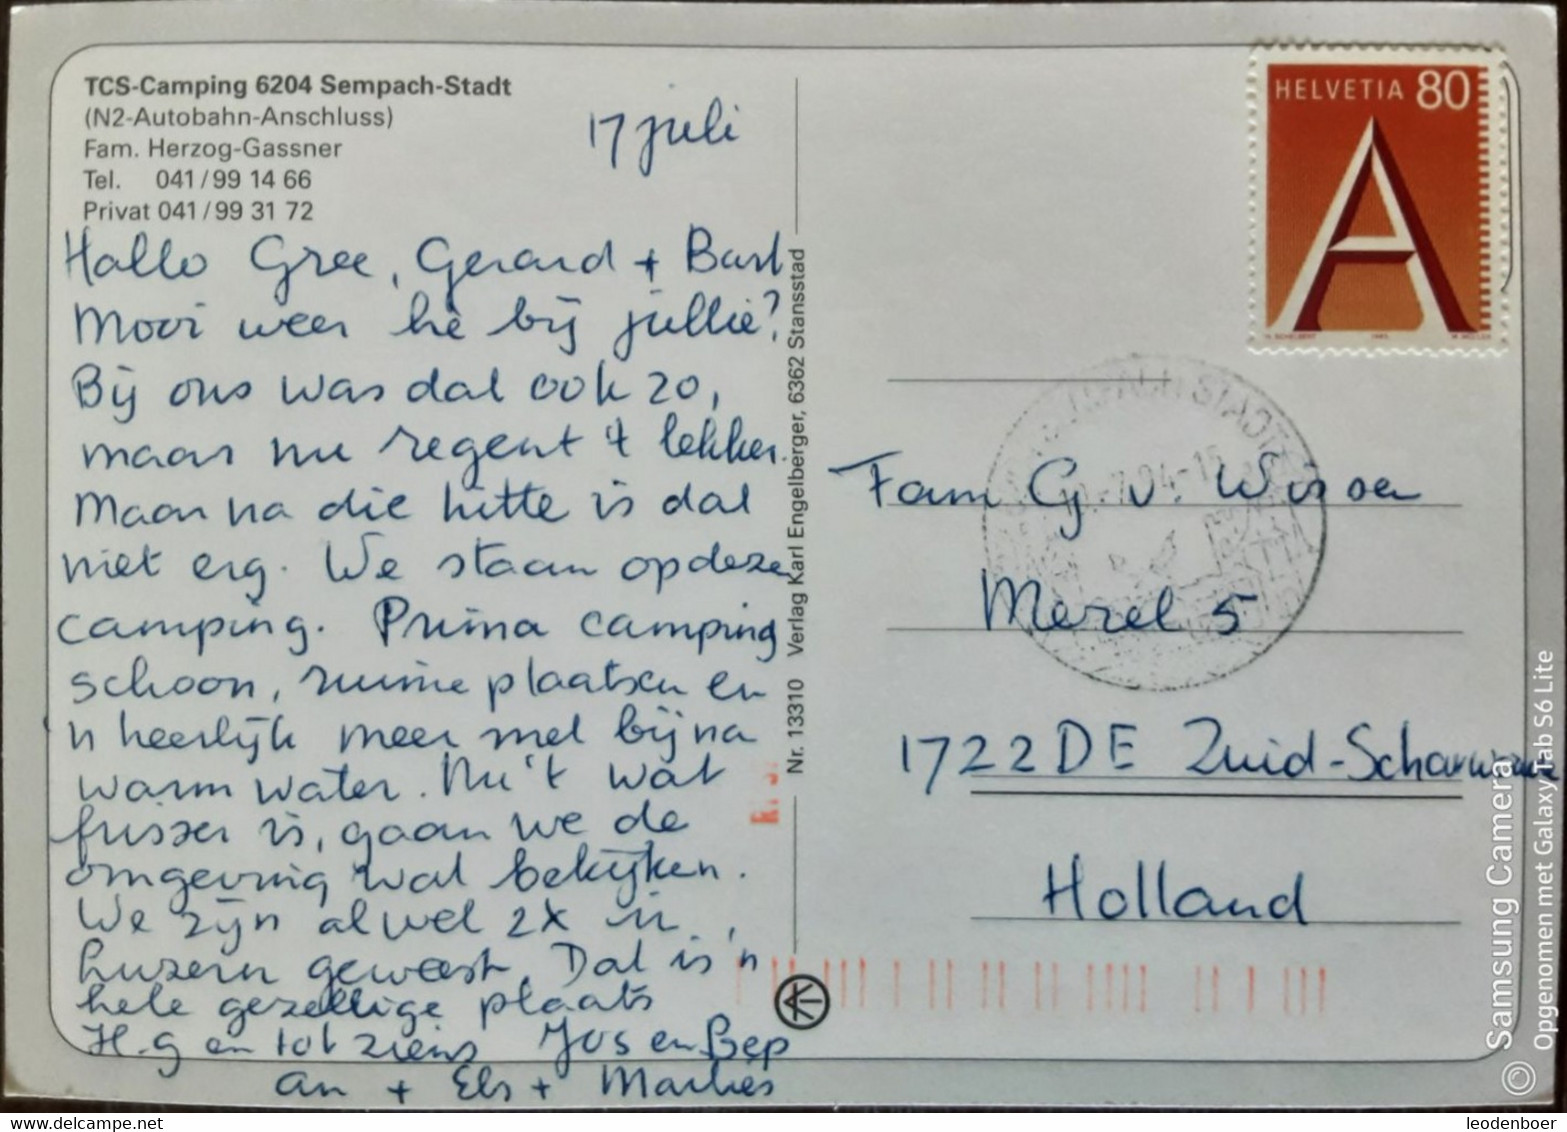 TCS-Camping 6204 Sempach-Stadt
(N2-Autobahn-Anschluss)
Fam. Herzog-Gassner
Tel. 041/99 14 66
Privat 041/99 31 72
17 juli
Hallo Gree, Gerard + Bart
Mooi weer hè bij jullie?
Bij ons was dat ook zo,
maar nu regent 't lekker.
Maar na die hitte is dat
niet erg. We staan op deze
camping. Prima camping
schoon, ruime plaatsen en
'n heerlijk meer met bijna
warm water. Nu 't wat
frisser is, gaan we de
omgeving wat bekijken.
We zijn al wel 2x in
Luzern geweest. Dat is 'n
hele gezellige plaats
H.g en tot ziens Jos en Bep
An + Els + Marlies
Nr. 13310 Verlag Karl Engelberger, 6362 Stansstad
HELVETIA 80
A
Fam G. v.
Merel 5
1722 DE Zuid-Scharwoude
Holland
Samsung Camera
Opgenomen met Galaxy Tab S6 Lite
leodenboer